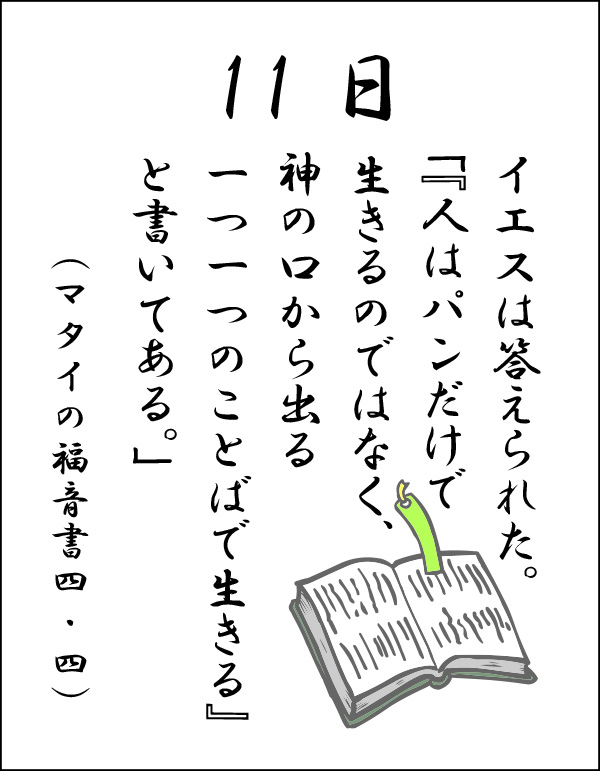 11日
イエスは答えられた。
「『人はパンだけで
生きるのではなく、
神の口から出る
一つ一つのことばで生きる』
と書いてある。」
（マタイの福音書四・四）